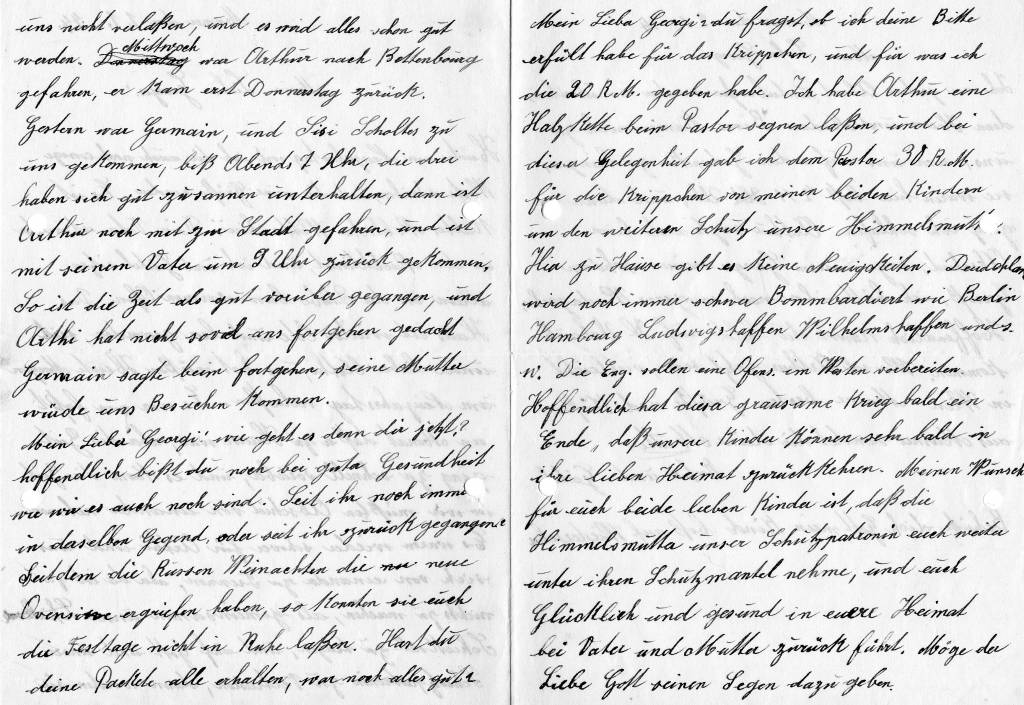 uns nicht verlaßen, und es wird alles schon gut
werden. Donnerstag Mittwoch war Arthur nach Bettenbourg
gefahren, er kam erst Donnerstag zurück.
Gestern war Germain, und Sisi Scholtes zu
uns gekommen, biß Abends 7 Uhr, die drei
haben sich gut zusannen unterhalten, dann ist
Arthur noch mit zur Stadt gefahren, und ist
mit seinem Vater um 9 Uhr zurück gekommen.
So ist die Zeit als gut vorüber gegangen, und
Arthi hat nicht soviel ans fortgehen gedacht
Germain sagte beim fortgehen, seine Mutter
würde uns Besuchen kommen.
Mein Lieber Georgi! wie geht es denn dir jetzt?
hoffendlich bißt du noch bei guter Gesundheit
wie wir es auch noch sind. Seit ihr noch immer
in derselben Gegend, oder seit ihr zurück gegangen
Seitdem die Russen Weinachten die neue
Ovensive ergriefen haben, so konnten sie euch
die Festtage nicht in Ruhe laßen. Hast du
deine Packete alle erhalten, war noch alles gut?
Mein Lieber Georgi? du fragst, ob ich deine Bitte
erfült habe für das Krippchen, und für was ich
die 20 R.M. gegeben habe. Ich habe Arthur eine
Halzkette beim Pastor segnen laßen, und bei
dieser Gelegenheit gab ich dem Pastor 30 R.M.
für die Krippchen von meinen beiden Kindern
um den weiteren Schutz unsere Himmelsmutt.
Hier zu Hause gibt es keine Neuigkeiten. Deudchlan
wird noch immer schwer Bommbardiert wie Berlin
Hambourg Ludwigshaffen Wilhelmshaffen und s.
w. Die Eng. sollen eine Ofens. im Westen vorbereiten.
Hoffendlich hat dieser grausame Krieg bald ein
Ende, daß unsere Kinder können sehr bald in
ihre lieben Heimat zurückkehren. Meinen Wunsch
für euch beide lieben Kinder ist, daß die
Himmelsmutter unser Schutzpatronin euch weiter
unter ihren Schutzmantel nehme, und euch
Glücklich und gesund in euere Heimat
bei Vater und Mutter zurück führt. Möge der
Liebe Gott seinen Segen dazu geben.